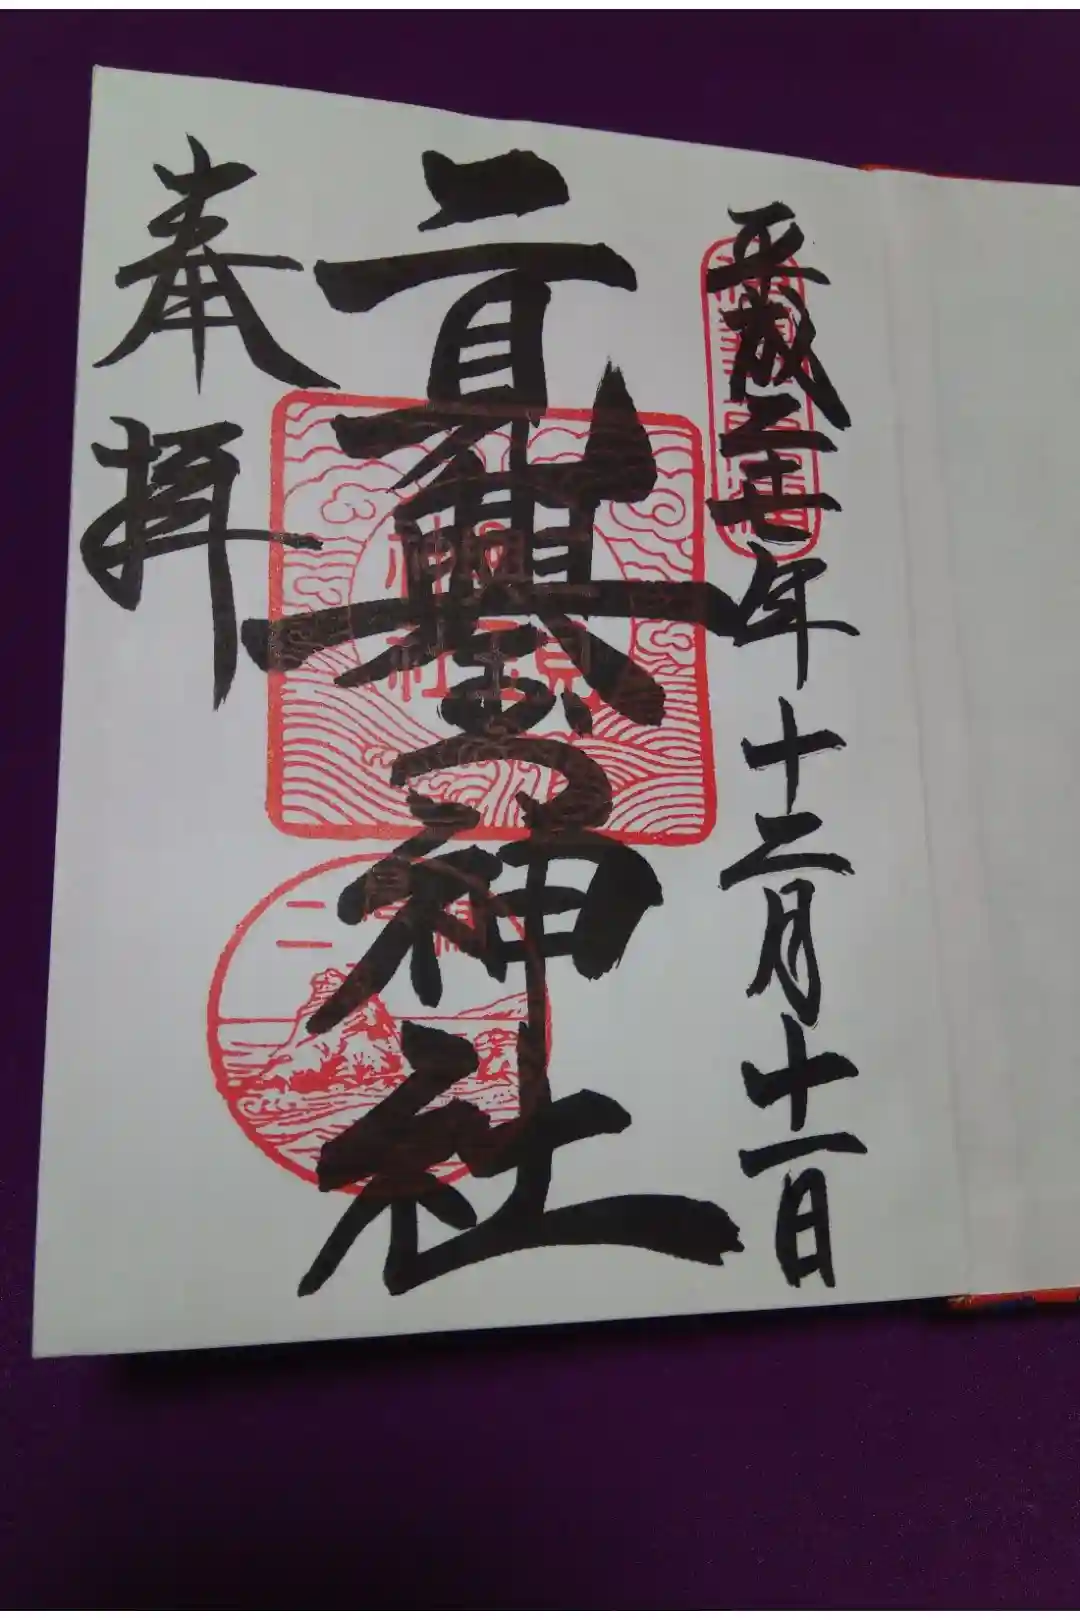 平成二十七年十二月十一日
二見興玉神社
奉拝
二見浦